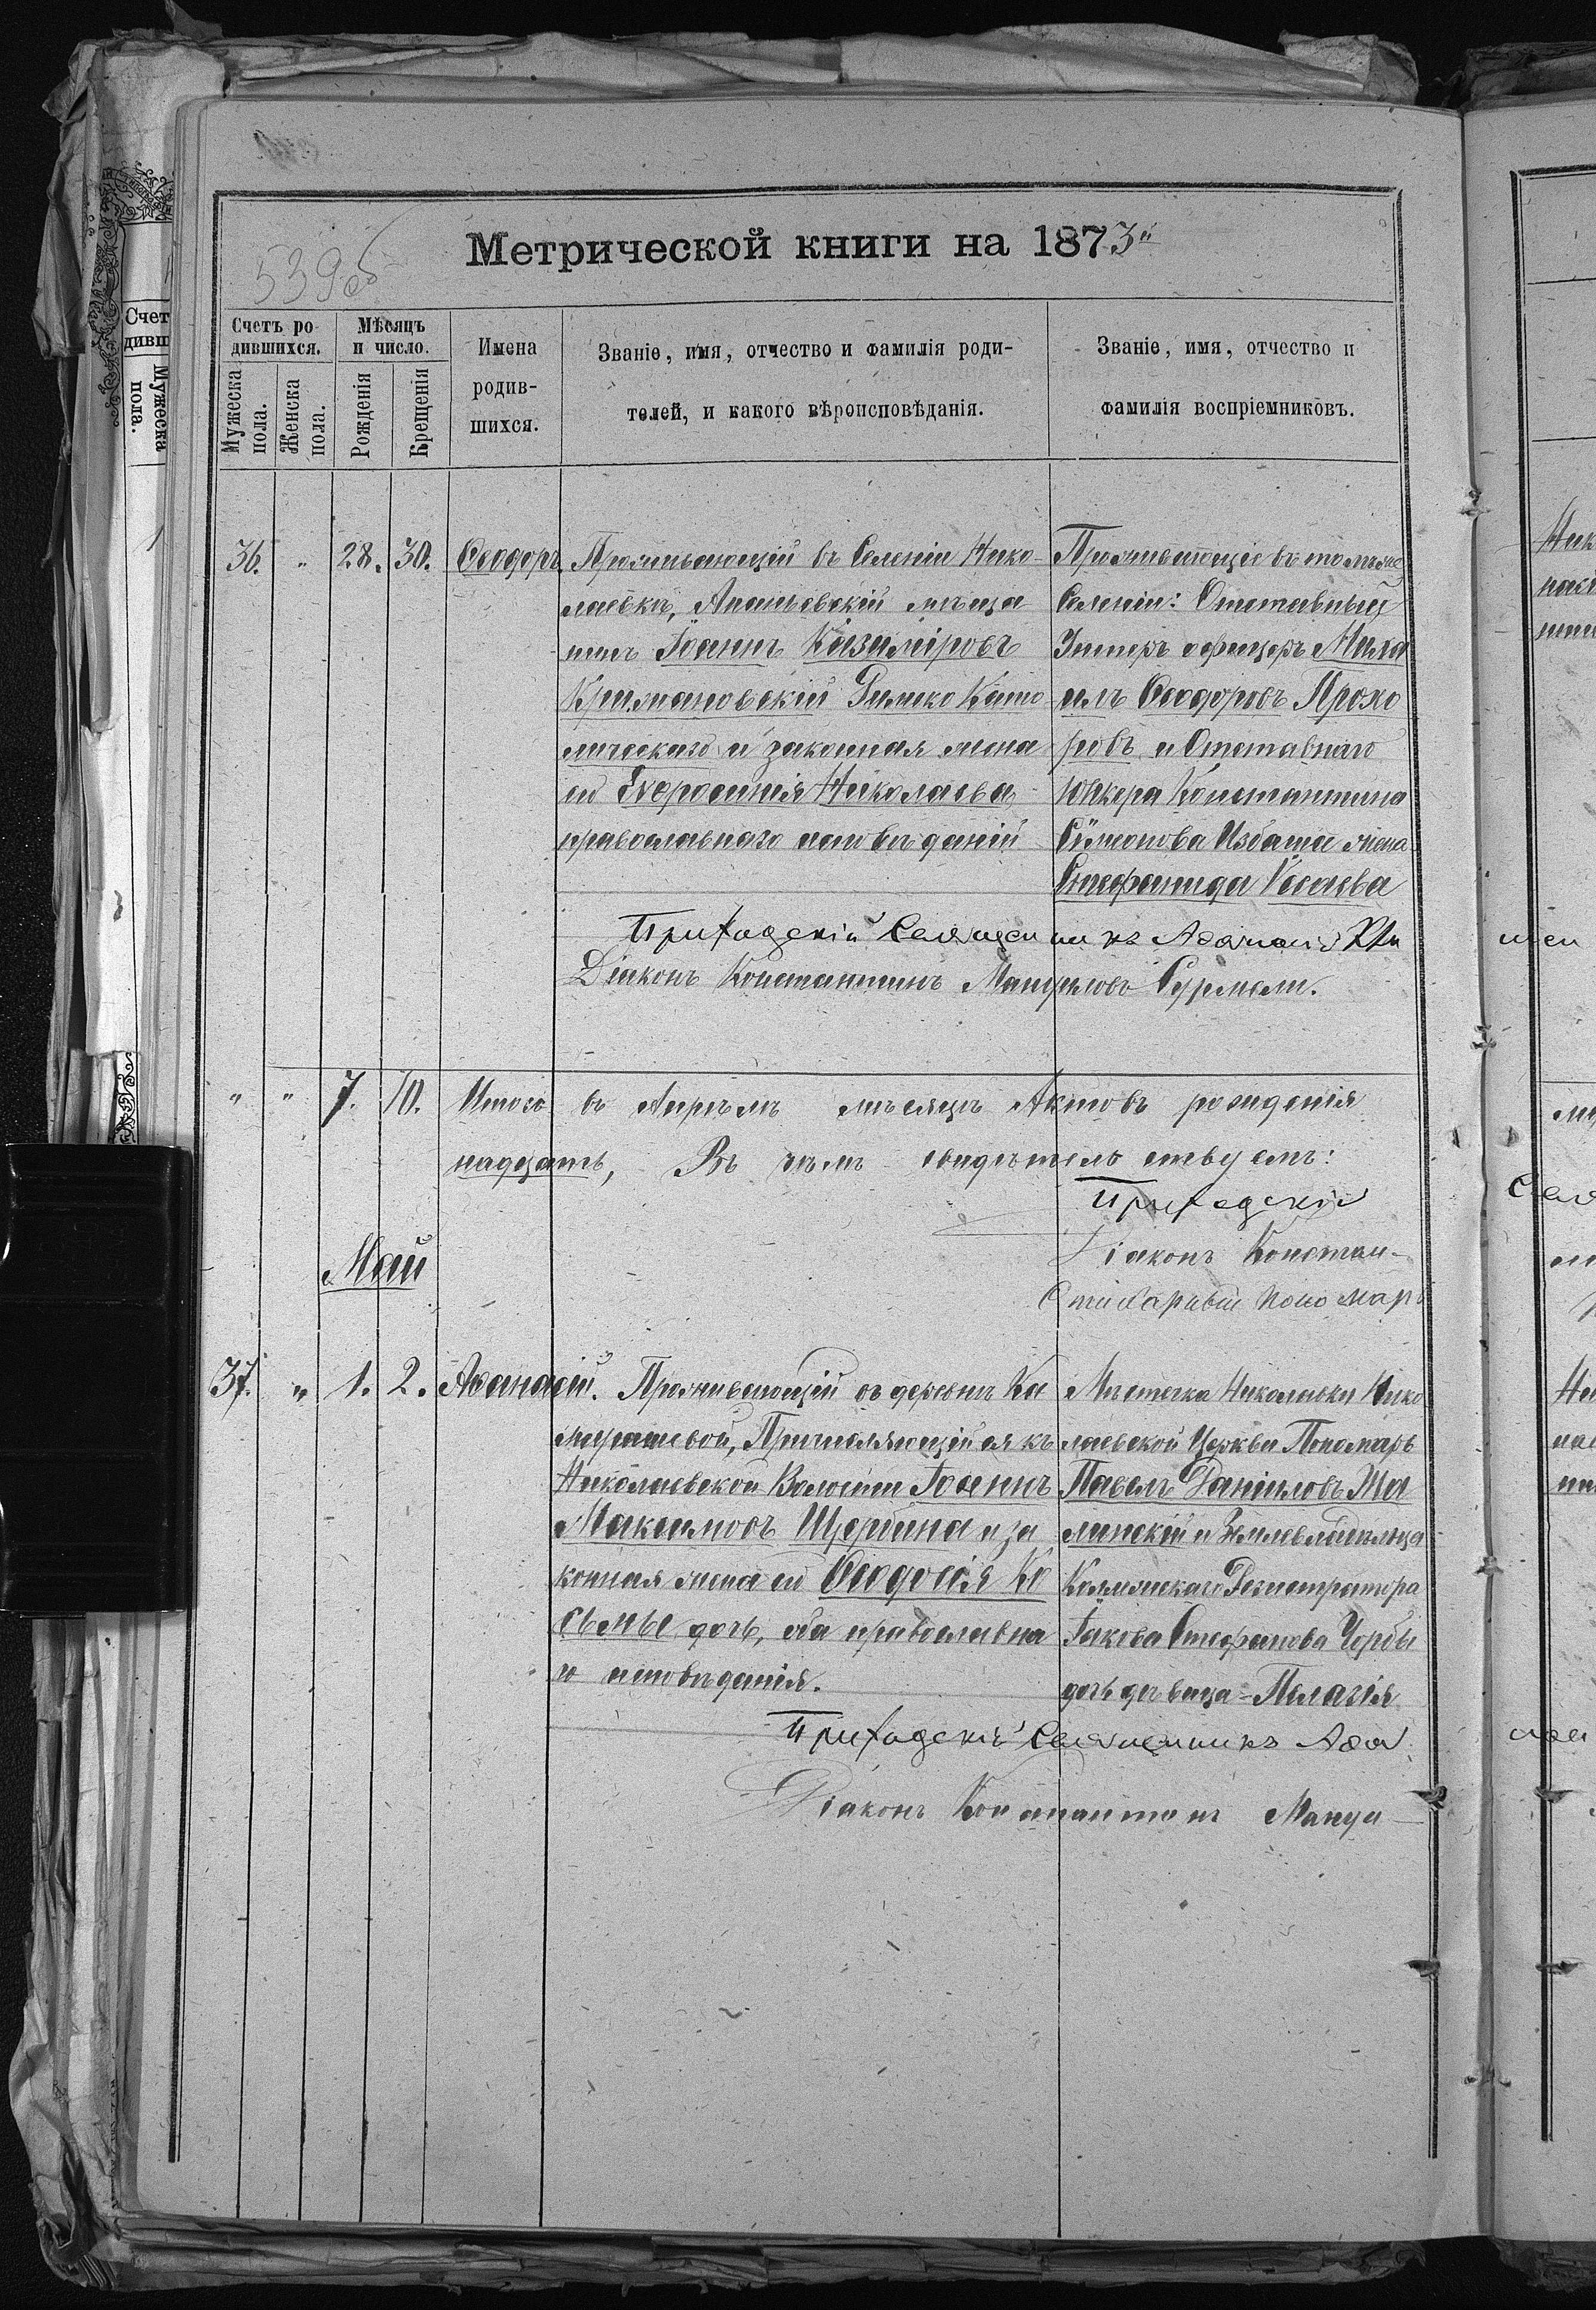 539об
Метрической книги на 1873й
Счетъ родившихся.
Мужеска пола.
Женска пола.
Мѣсяцъ и число.
Рожденія
Крещенія
Имена родив-
шихся.
Званіе, имя, отчество и фамилія роди-
телей, и какого вѣроисповѣданія.
Званіе, имя, отчество и
фамилія воспріемниковъ.
36. " 28. 30. Ѳеодоръ.
Проживающій въ Селеніи Нико-
лаевкѣ, Ананьевскій мѣща
нинъ Іоаннъ Казиміровъ
Крижановскій Римско Като
лическаго и законная жена
его Евфросинія Николаева,
православнаго исповѣданій
Проживающіе въ томъ же
Селеніи: Отставный
Унтеръ офицеръ Миха
илъ Ѳеодоровъ Прохо
ровъ и Отставнаго
Юнкера Константина
Симеонова Избаша жена
Стефанида Исаева
Приходскій Священникъ Аѳанасій
Діаконъ Константинъ Мануиловъ Сурмели.
" " 7. 10. Итого въ Апрѣлѣ мѣсяцѣ Актовъ рожденія
надцать, Въ чемъ свидѣтельствуемъ:
Приходскій
Діаконъ Констан-
Стихарный Пономарь
Май
37. " 1. 2. Аѳанасій.
Проживающій въ деревнѣ Ка
рашевой, Причисляющійся къ
Николаевской Волости Іоаннъ
Максимовъ Щербина и за
конная жена его Ѳеодосія Ко
сьмы дочь, оба православна
го исповѣданія.
Мѣстечка Николаевки Нико
лаевской Церкви Пономарь
Павелъ Даніиловъ Ша
линскій и Землевладѣльца
Коллежскаго Регистратора
Іакова Стефанова Чорбы
дочь дѣвица Пелагія
Приходскій Священникъ Аѳа
Діаконъ Константинъ Мануи